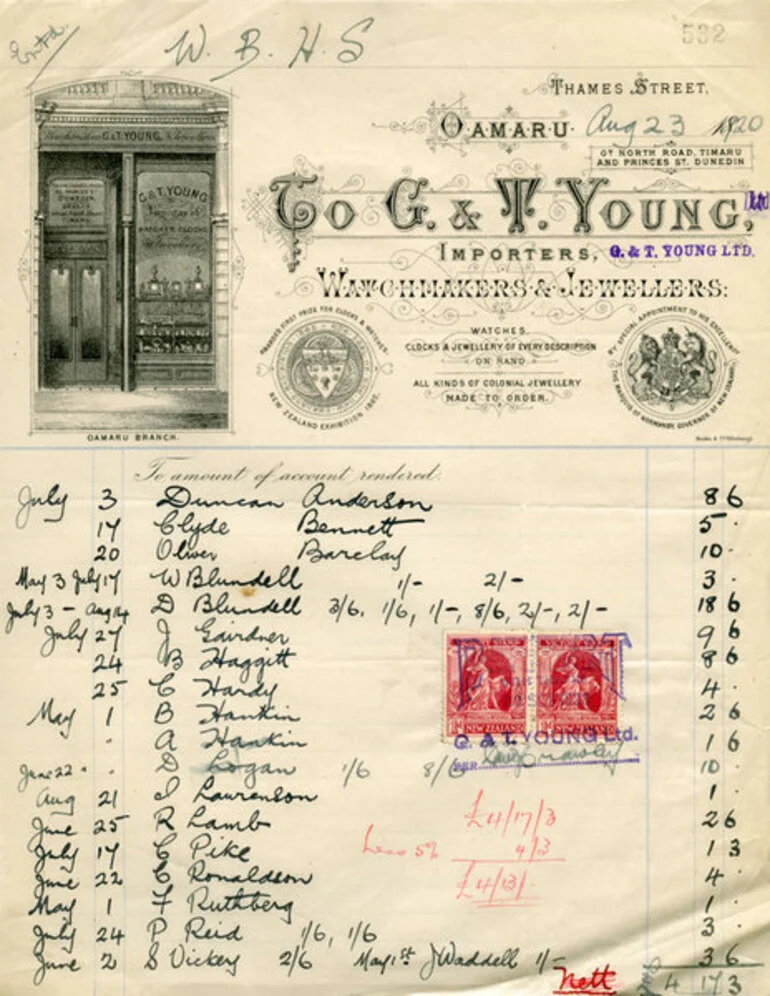 Entd.
W. B. H. S
532
THAMES STREET,
OAMARU Aug 23 1920
GT NORTH ROAD, TIMARU
AND PRINCES ST. DUNEDIN
G. & T. YOUNG
G & T. YOUNG
WATCHES CLOCKS
TO G. & T. YOUNG, Ltd
IMPORTERS, G. & T. YOUNG LTD.
WATCHMAKERS & JEWELLERS:
AWARDED FIRST PRIZE FOR CLOCKS & WATCHES
NEW ZEALAND EXHIBITION 1882.
WATCHES.
CLOCKS & JEWELLERY OF EVERY DESCRIPTION
ON HAND
ALL KINDS OF COLONIAL JEWELLERY
MADE TO ORDER.
BY SPECIAL APPOINTMENT TO HIS EXCELLENCY
THE MARQUIS OF NORMANBY, GOVERNOR OF NEW ZEALAND.
OAMARU BRANCH.
To amount of account rendered.
July 3 Duncan Anderson 8 6
17 Clyde Bennett 5 ·
20 Oliver Barclay 10 ·
May 3 July 17 W Blundell 1/- 2/- 3 ·
July 3 - Aug 14 D Blundell 3/6, 1/6, 1/-, 8/6, 2/-, 2/- 18 6
July 27 J Gairdner 9 6
24 B Haggitt 8 6
25 C Hardy 4 ·
May 1 B Hankin 2 6
· · A Hankin 1 6
June 22 · · D Logan 1/6 8/6 10 ·
Aug 21 S Laurenson 1 ·
June 25 R Lamb 2 6
July 17 C Pike 1 3
June 22 C Ronaldson 4 ·
May 1 F Ruthberg 1 ·
July 24 P Reid 1/6, 1/6 3 ·
June 2 S Vickery 2/6 May 1st J Waddell 1/- 3 6
Nett 4 17 3
VICTORY STAMP VICTORY STAMP
1D NEW ZEALAND 1D NEW ZEALAND
G. & T. YOUNG Ltd.
PER
£4/17/3
Less 5% 4/3
£4/13/-